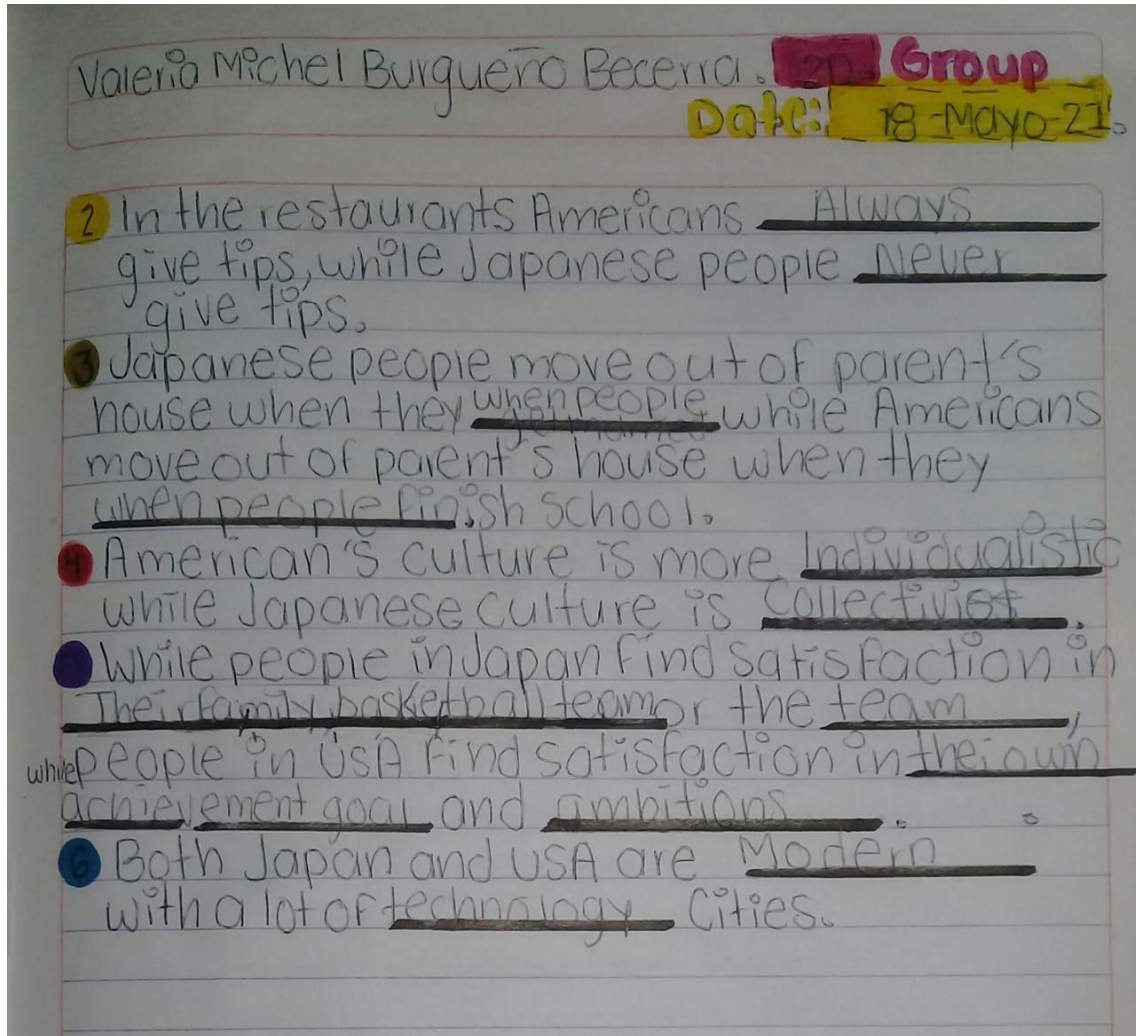 Valeria Michel Burgueño Becerra. 2D. Group
Date: 18-Mayo-21.
2 In the restaurants Americans Always
give tips, while Japanese people Never
give tips.
3 Japanese people move out of parent's
house when they when people while Americans
get married
move out of parent's house when they
when people finish school.
4 American's culture is more Individualistic
while Japanese culture is Collectivist.
While people in Japan find satisfaction in
Their family, basketball team or the team,
while people in USA find satisfaction in thei own
achievement goal and ambitions.
6 Both Japan and USA are Modern
with a lot of technology Cities.